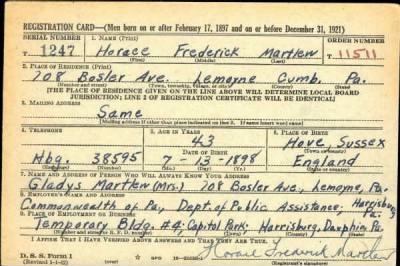 REGISTRATION CARD—(Men born on or after February 17, 1897 and on or before December 31, 1921)
SERIAL NUMBER 1. NAME (Print) ORDER NUMBER
T 1247 Horace Frederick Martlew 11511
(First) (Middle) (Last)
2. PLACE OF RESIDENCE (Print)
708 Bosler Ave. Lemoyne Cumb. Pa.
(Number and street) (Town, township, village, or city) (County) (State)
[THE PLACE OF RESIDENCE GIVEN ON THE LINE ABOVE WILL DETERMINE LOCAL BOARD
JURISDICTION; LINE 2 OF REGISTRATION CERTIFICATE WILL BE IDENTICAL]
3. MAILING ADDRESS
Same
[Mailing address if other than place indicated on line 2. If same insert word same]
4. TELEPHONE 5. AGE IN YEARS 6. PLACE OF BIRTH
43 Hove, Sussex
DATE OF BIRTH
Hbg. 38595 7-13-1898 England
7. NAME AND ADDRESS OF PERSON WHO WILL ALWAYS KNOW YOUR ADDRESS
Gladys Martlew (Mrs.) 708 Bosler Ave., Lemoyne, Pa.
8. EMPLOYER'S NAME AND ADDRESS
Commonwealth of Pa., Dept. of Public Assistance. Harrisburg Pa.
9. PLACE OF EMPLOYMENT OR BUSINESS
Temporary Bldg. #4, Capitol Park, Harrisburg, Dauphin Pa.
I AFFIRM THAT I HAVE VERIFIED ABOVE ANSWERS AND THAT THEY ARE TRUE.
D. S. S. Form 1
(Revised 1-1-42)
Horace Frederick Martlew